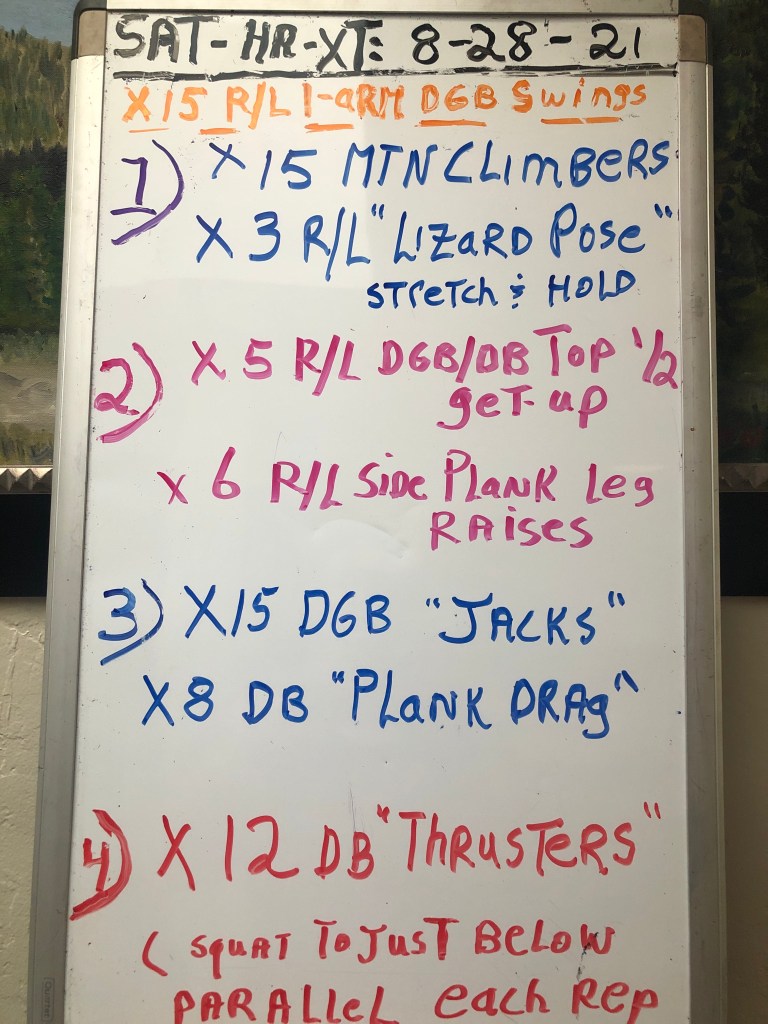 SAT-HR-XT: 8-28-21
X15 R/L 1-ARM DGB Swings
1) X 15 MTNCLIMBERS
X 3 R/L "LIZARD POSE"
STRETCH & HOLD
2) X 5 R/L DGB/DB TOP 1/2
get-up
X 6 R/L Side PLANK Leg
RAises
3) X15 DGB "JACKS"
X8 DB "PLANK DRAg"
4) X 12 DB "THRUSTERS"
( SQUAT TO JUST BELOW
PARALLEL each Rep